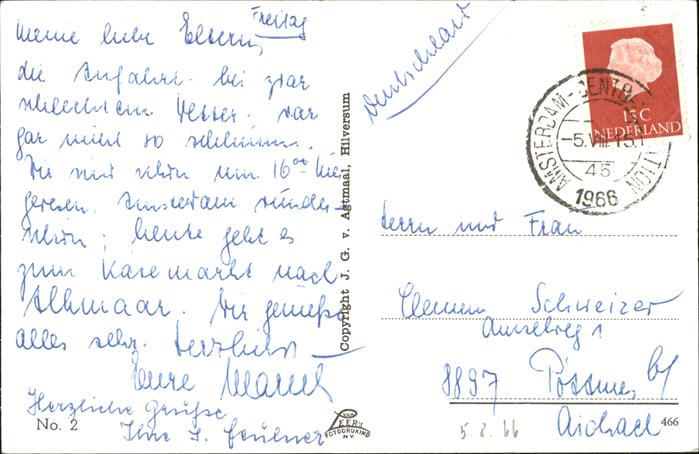 Freitag
Meine liebe Eltern,
die Anfahrt bei zwar
schlechtem Wetter, war
gar nicht so schlimm.
Wir sind schon um 16°° hier
gewesen. Amsterdam wunder-
schön; heute geht es
zum Käsemarkt nach
Alkmaar. Wir genießen
alles sehr. Herzlichst
Eure
Herzliche Grüße
Ihre J.
No. 2
Copyright J. G. v. Agtmaal, Hilversum
VAN
LEER'S
FOTODRUKIND
N.V.
Deutschland
15 C
NEDERLAND
AMSTERDAM-CENTR. STATION
-5.VIII.15
45
1966
Herrn und Frau
Clemens Schweizer
Amselweg 1
8897 Pöttmes b/
Aichach
5.8.66
466